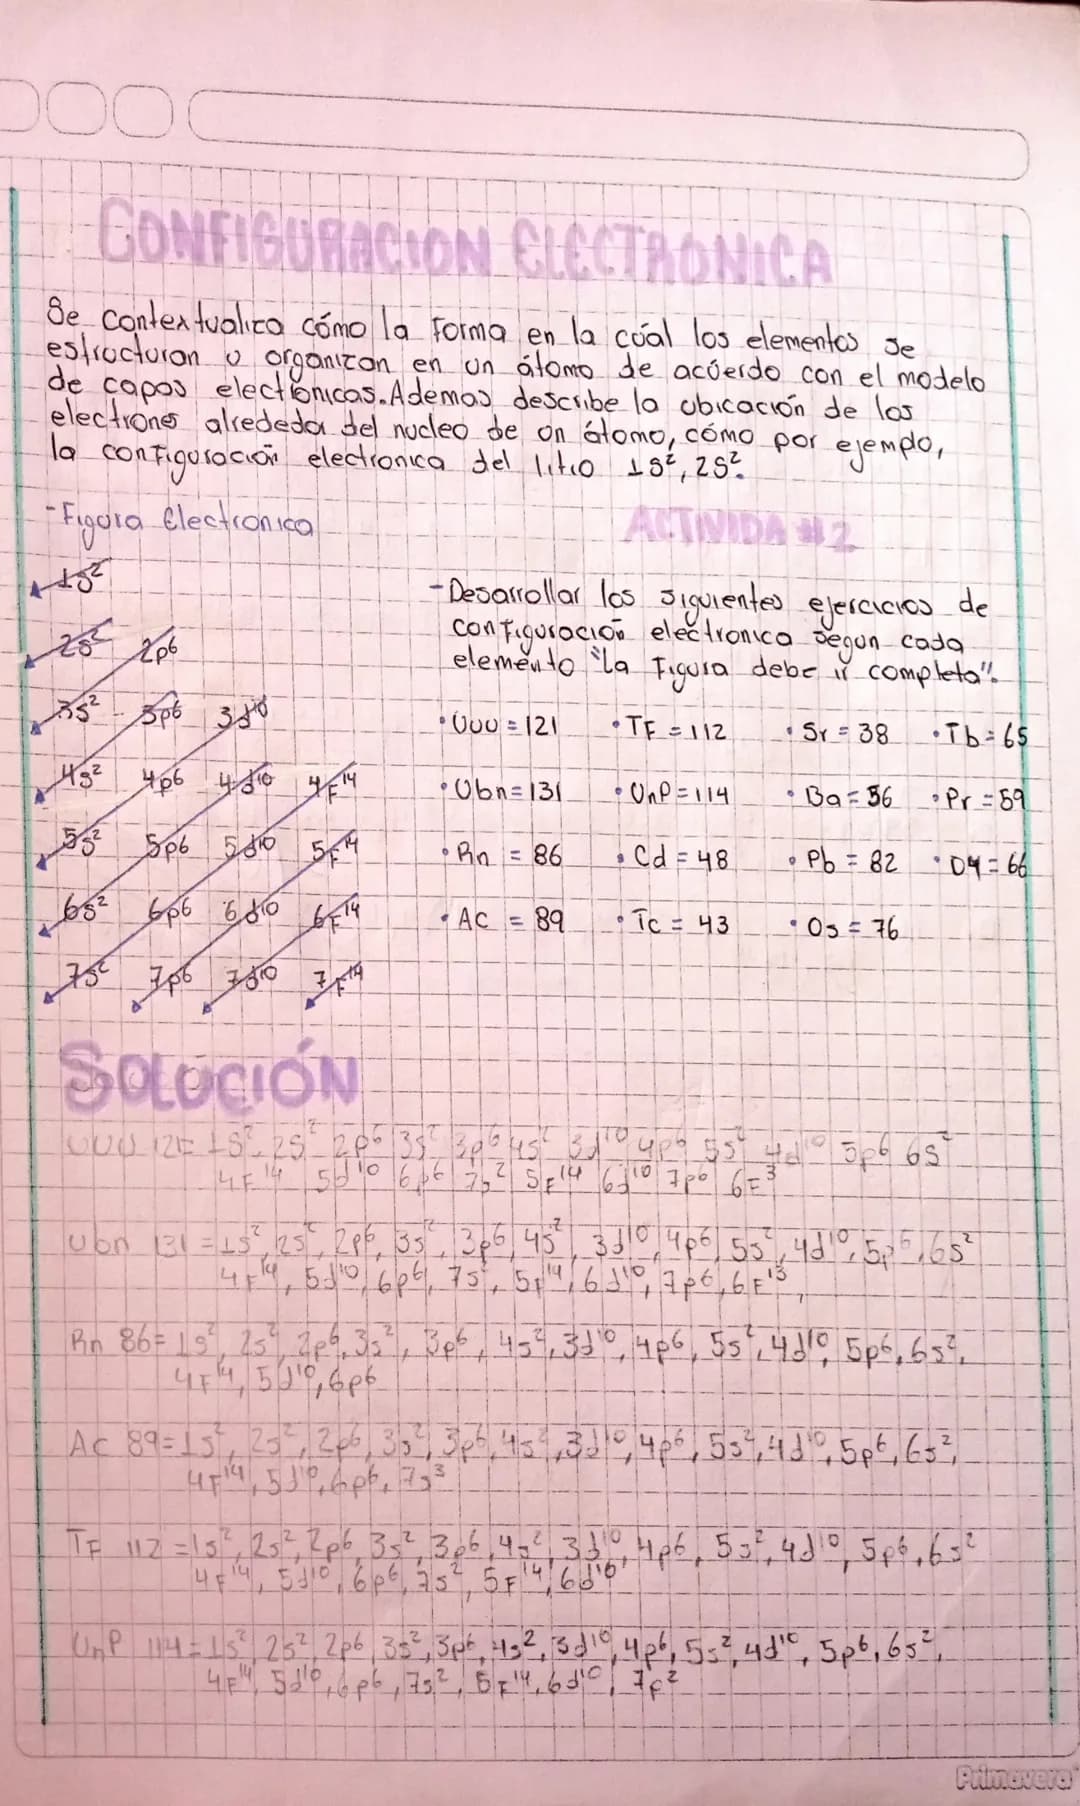 CONFIGURACION ELECTRONICA
Se contextualiza cómo la Forma en la cúal los elementos se
estructuran u organizan en un átomo de acúerdo con el modelo
de capas electrónicas. Ademas describe la ubicación de los
electrones alrededor del nucleo de un átomo, cómo por ejemplo,
la configuración electronica del litio 1s², 2s².
- Figura Electronica
ACTIVIDA #2
1s²
2s² 2p6
3s² 3p6 3d10
4s² 4p6 4d10 4F14
5s² 5p6 5d10 5F14
6s² 6p6 6d10 6F14
7s² 7p6 7d10 7F14
- Desarrollar los siguientes ejercicios de
configuración electronica segun cada
elemento "la Figura debe ir completa".
• Uuu = 121 • TF = 112 • Sr = 38 • Tb = 65
• Ubn = 131 • UnP = 114 • Ba = 56 • Pr = 59
• Rn = 86 • Cd = 48 • Pb = 82 • D4 = 66
• AC = 89 • Tc = 43 • Os = 76
SOLUCIÓN
UUU 121= 1s² 2s² 2p6 3s² 3p6 4s² 3d10 4p6 5s² 4d10 5p6 6s²
4F14 5d10 6p6 7s² 5F14 6d10 7p6 6F3
Ubn 131 = 1s², 2s², 2p6, 3s², 3p6, 4s², 3d10, 4p6, 5s², 4d10, 5p6, 6s²
4F14, 5d10, 6p6, 7s², 5F14, 6d10, 7p6, 6F13,
Rn 86= 1s², 2s², 2p6, 3s², 3p6, 4s², 3d10, 4p6, 5s², 4d10, 5p6, 6s²,
4F14, 5d10, 6p6
AC 89= 1s², 2s², 2p6, 3s², 3p6, 4s², 3d10, 4p6, 5s², 4d10, 5p6, 6s²,
4F14, 5d10, 6p6, 7s3
TF 112 = 1s², 2s², 2p6, 3s², 3p6, 4s², 3d10, 4p6, 5s², 4d10, 5p6, 6s²
4F14, 5d10, 6p6, 7s², 5F14, 6d10
UnP 114= 1s², 2s² 2p6, 3s², 3p6, 4s², 3d10, 4p6, 5s², 4d10, 5p6, 6s²,
4F14, 5d10, 6p6, 7s², 5F14, 6d10, 7p²
Primavera